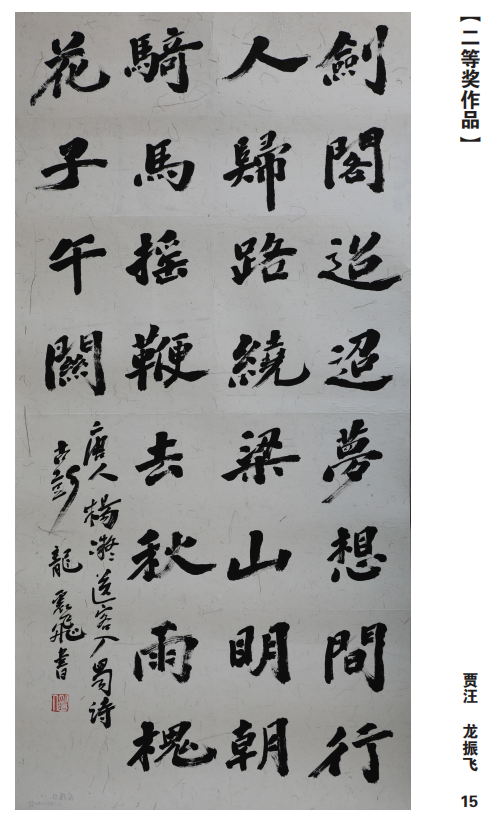 【二等奖作品】
劍閣迢迢夢想間行
人歸路繞梁山明朝
騎馬摇鞭去秋雨槐
花子午關
唐人楊凝送客入蜀詩
古彭龍震飛書
贾汪 龙振飞
15